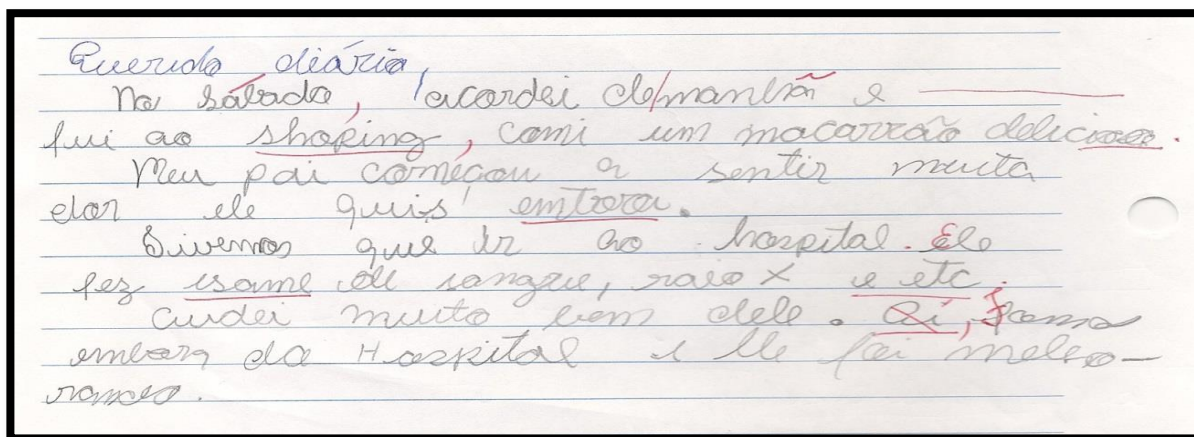 Querido diário,
No sábado, acordei de manhã e
fui ao shoping, comi um macarrão delicioso.
Meu pai começou a sentir muita
dor ele quis
Tivemos que ir ao hospital. Ele
fez esame de sangue, raio X e etc.
Cuidei muito bem dele. Aí, fomos
embora do Hospital e ele foi melho-
rando.